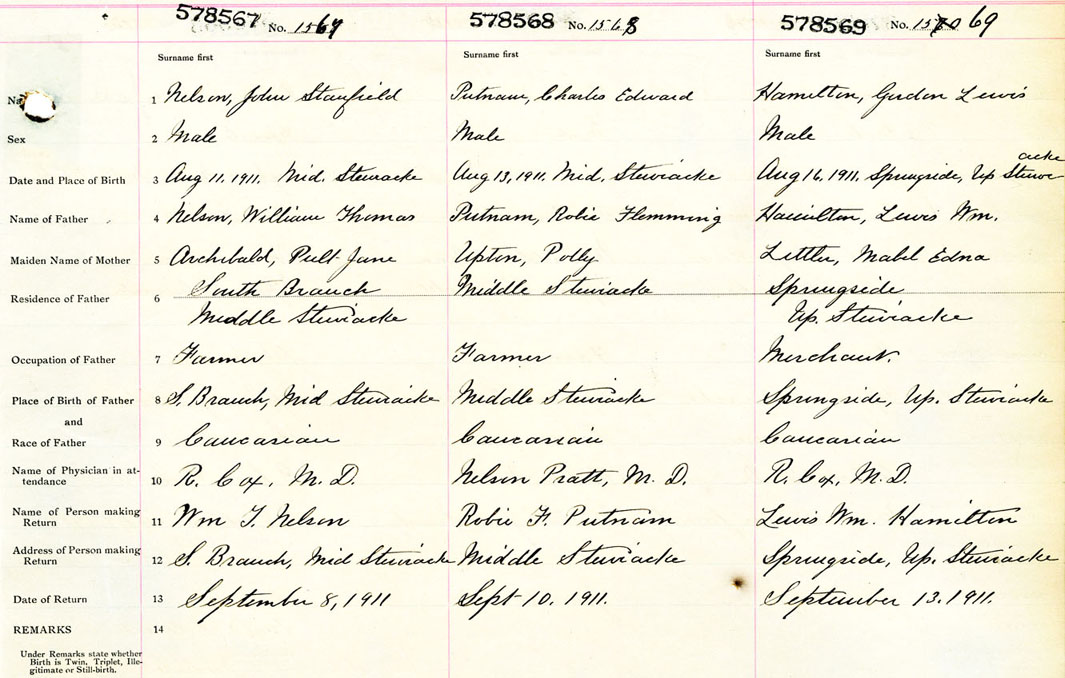 578567 No. 1567 578568 No. 1568 578569 No. 1570 69
Surname first Surname first Surname first
1 Nelson, John Stanfield Putnam, Charles Edward Hamilton, Gordon Lewis
Sex 2 Male Male Male
acke
Date and Place of Birth 3 Aug 11. 1911. Mid. Stewiacke Aug 13, 1911. Mid. Stewiacke Aug 16, 1911. Springside, Up Stewi
Name of Father 4 Nelson, William Thomas Putnam, Robie Flemming Hamilton, Lewis Wm.
Maiden Name of Mother 5 Archibald, Jane Upton, Polly Littler, Mabel Edna
South Branch Middle Stewiacke Springside
Residence of Father 6
Middle Stewiacke Up. Stewiacke
Occupation of Father 7 Farmer Farmer Merchant.
Place of Birth of Father 8 S. Branch, Mid Stewiacke Middle Stewiacke Springside, Up. Stewiacke
and
Race of Father 9 Caucasian Caucasian Caucasian
Name of Physician in at-
tendance 10 R. Cox, M.D. Nelson Pratt, M.D. R. Cox, M.D.
Name of Person making
Return 11 Wm T. Nelson Robie F. Putnam Lewis Wm. Hamilton
Address of Person making
Return 12 S. Branch, Mid Stewiacke Middle Stewiacke Springside, Up. Stewiacke
Date of Return 13 September 8, 1911 Sept 10. 1911. September 13. 1911.
REMARKS 14
Under Remarks state whether
Birth is Twin, Triplet, Ille-
gitimate or Still-birth.